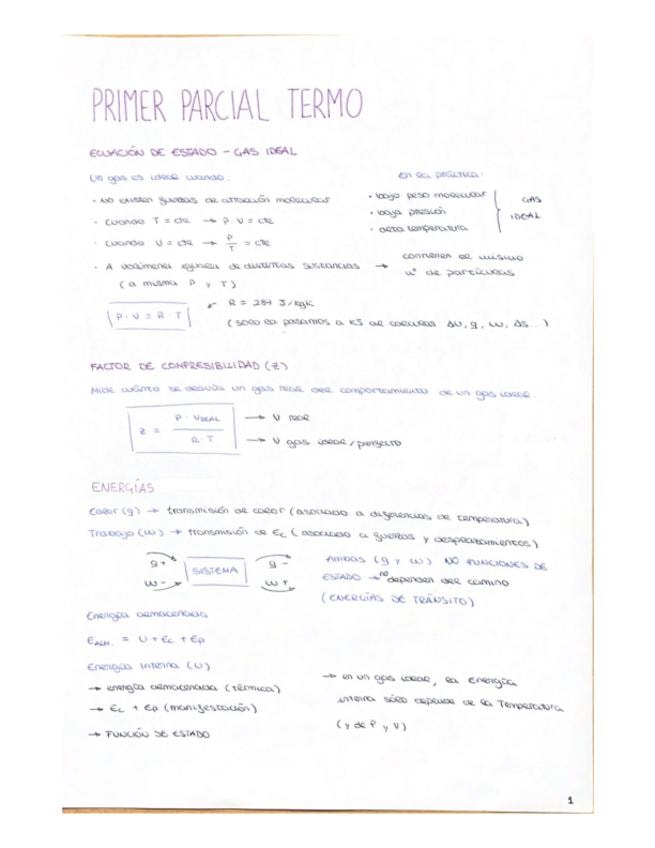 PRIMER PARCIAL TERMO
ECUACIÓN DE ESTADO - GAS IDEAL
Un gas es ideal cuando:
· No existen fuerzas de atracción molecular
· Cuando T = cte → P · V = cte
· Cuando V = cte → P/T = cte
· A volúmenes iguales de distintas sustancias → contienen el mismo nº de partículas
(a misma P y T)
En la práctica:
· bajo peso molecular
· baja presión
· alta temperatura
GAS IDEAL
P · V = R · T
R = 287 J/kgK
(solo la pasamos a KJ al calcular ΔU, q, w, ΔS...)
FACTOR DE COMPRESIBILIDAD (Z)
Mide cuánto se desvía un gas real del comportamiento de un gas ideal.
Z = P · VREAL / R · T
→ V real
→ V gas ideal/perfecto
ENERGÍAS
Calor (q) → transmisión de calor (asociado a diferencias de temperatura)
Trabajo (w) → transmisión de Ec (asociado a fuerzas y desplazamientos)
q+ SISTEMA q-
w- w+
Ambas (q y w) NO FUNCIONES DE
ESTADO → no dependen del camino
(ENERGÍAS DE TRÁNSITO)
Energía almacenada
EALM. = U + Ec + Ep
Energía Interna (U)
→ energía almacenada (térmica)
→ Ec + Ep (manifestación)
→ FUNCIÓN DE ESTADO
→ en un gas ideal, la energía
interna sólo depende de la Temperatura
(y de P y V)
1